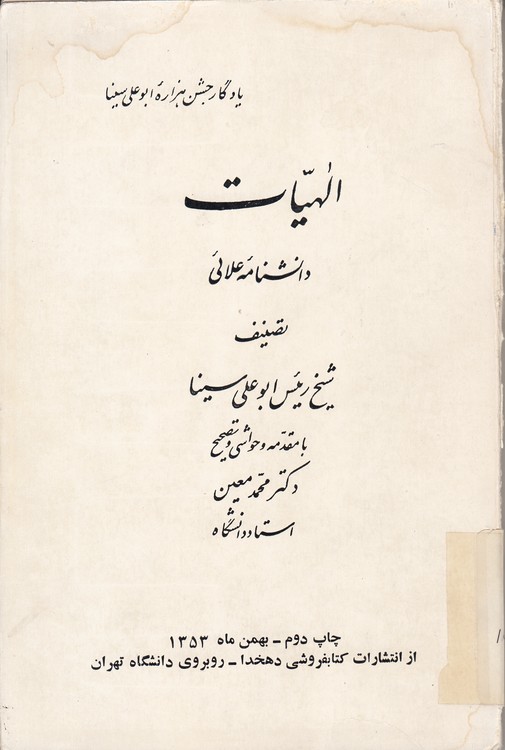 یادگار جشن هزارهٔ ابوعلی سینا
الٰهیّات
دانشنامهٔ علائی
تصنیف
شیخ رئیس ابوعلی سینا
با مقدّمه و حواشی و تصحیح
دکتر محمّد معین
استاد دانشگاه
چاپ دوم ـ بهمن ماه ۱۳۵۳
از انتشارات کتابفروشی دهخدا ـ روبروی دانشگاه تهران